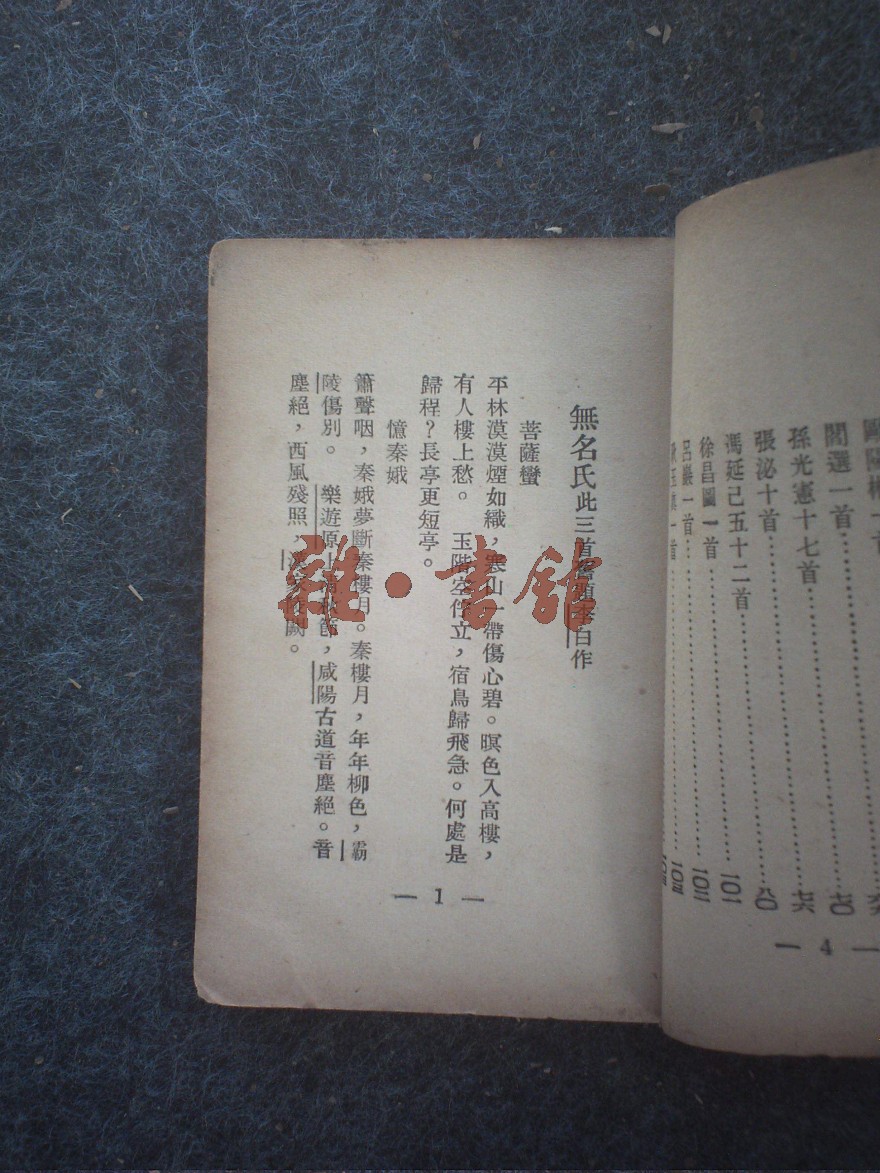 歐陽
閻選一首
七〇
孫光憲十七首
七六
張泌十首
八〇
馮延己五十二首
一〇一
徐昌圖一首
一〇二
呂巖一首
一〇三
一首
— 4 —
無名氏此三首舊題李白作
菩薩蠻
平林漠漠煙如織,寒山一帶傷心碧。暝色入高樓,
有人樓上愁。 玉階空佇立,宿鳥歸飛急。何處是
歸程?長亭更短亭。
憶秦娥
簫聲咽,秦娥夢斷秦樓月。秦樓月,年年柳色,霸
陵傷別。 樂遊原上清秋節,咸陽古道音塵絕。音
塵絕,西風殘照,漢家陵闕。
— 1 —
雜·書館